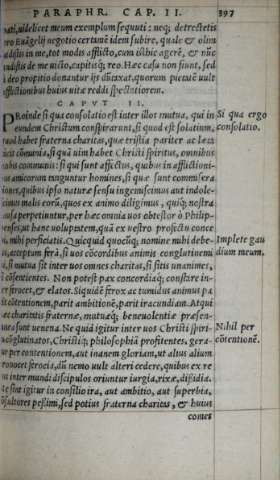 PARAPHR. CAP. II. 397
nati, uidelicet meum exemplum sequuti: neq; detrectetis
pro Euãgelij negotio certamẽ idem subire, quale & olim
uidistis in me, tot modis afflicto, cum istic agerẽ, & nũc
auditis de me uicto, captiuoq; reo. Hæc casu non fiunt, sed
deo propitio donantur ijs dũtaxat, quorum pietatẽ uult
afflictionibus huius uitæ reddi spectatiorem.
CAPVT II.
PRoinde si qua consolatio est inter illos mutua, qui in
eundem Christum conspirarunt, si quod est solatium,
quod habet fraterna charitas, quæ tristia pariter ac læta
facit cõmunia, si qua uim habet Christi spiritus, omnibus
nobis communis: si qui sunt affectus, quibus in afflictioni-
bus amicorum tanguntur homines, si quæ sunt commisera
tiones, quibus ipso naturæ sensu ingemiscimus aut indole-
scimus malis eorũ, quos ex animo diligimus,
per hæc omnia uos obtestor ò Philip-
penses, ut hanc uoluptatem, quã ex uestro profectu conce
pi, mihi perficiatis. Quicquid quocũq; nomine mihi debe-
acceptum ferã, si uos cõcordibus animis conglutinemi
ni, si mutua sit inter uos omnes charitas, si sitis unanimes,
si cõsentientes. Non potest pax concordiaq; constare in-
ter feroces, & elatos. Siquidẽ ferox ac tumidus animus pa
rit cõtentionem, parit ambitionẽ, parit iracundiam. Atqui
hæc charitatis fraternæ, mutuæq; beneuolentiæ præsen-
tanea sunt uenena. Ne quid igitur inter uos Christi spiri-
tu cõglutinatos, Christiq; philosophiã profitentes, gera-
tur per contentionem, aut inanem gloriam, ut altus alium
ferocia, dũ nemo uult alteri cedere, quibus ex re
bus inter mundi discipulos oriuntur iurgia, rixæ, dissidia.
Ne sint igitur in consilio ira, aut ambitio, aut superbia,
cõsultores pessimi, sed potius fraterna charitas, & huius
comes
Si qua ergo
consolatio.
Implete gau
dium meum.
Nihil per
cõtentionẽ.